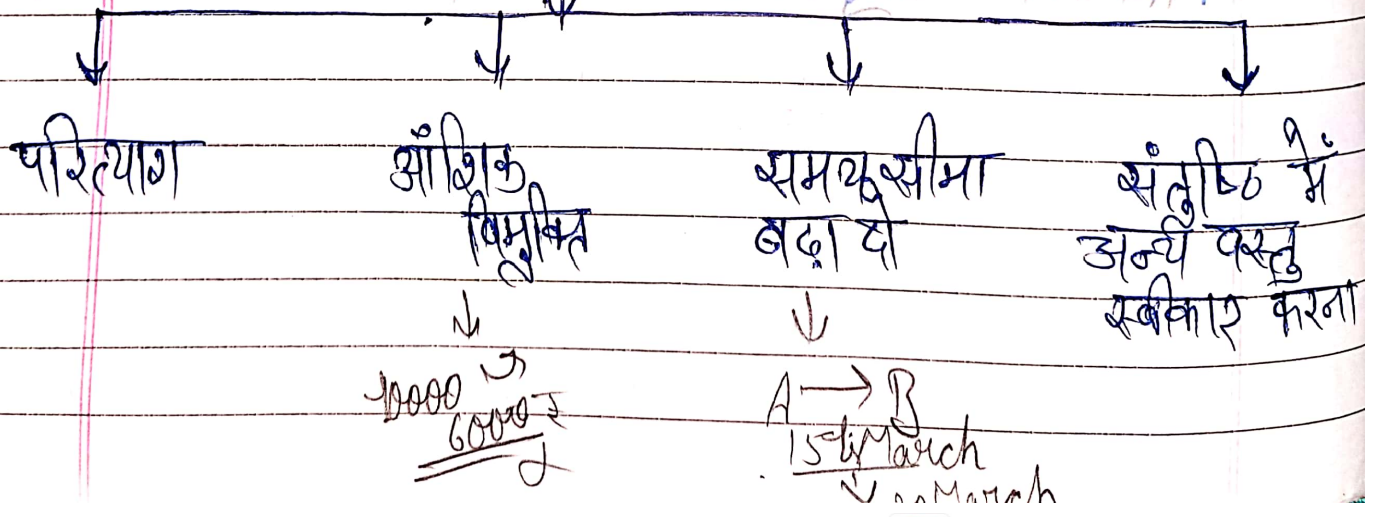 परित्याग
आँशिक
विमुक्ति
10000
6000₹
समय सीमा
बढ़ा दो
A → B
15th March
March
संतुष्टि में
अन्य वस्तु
स्वीकार करना